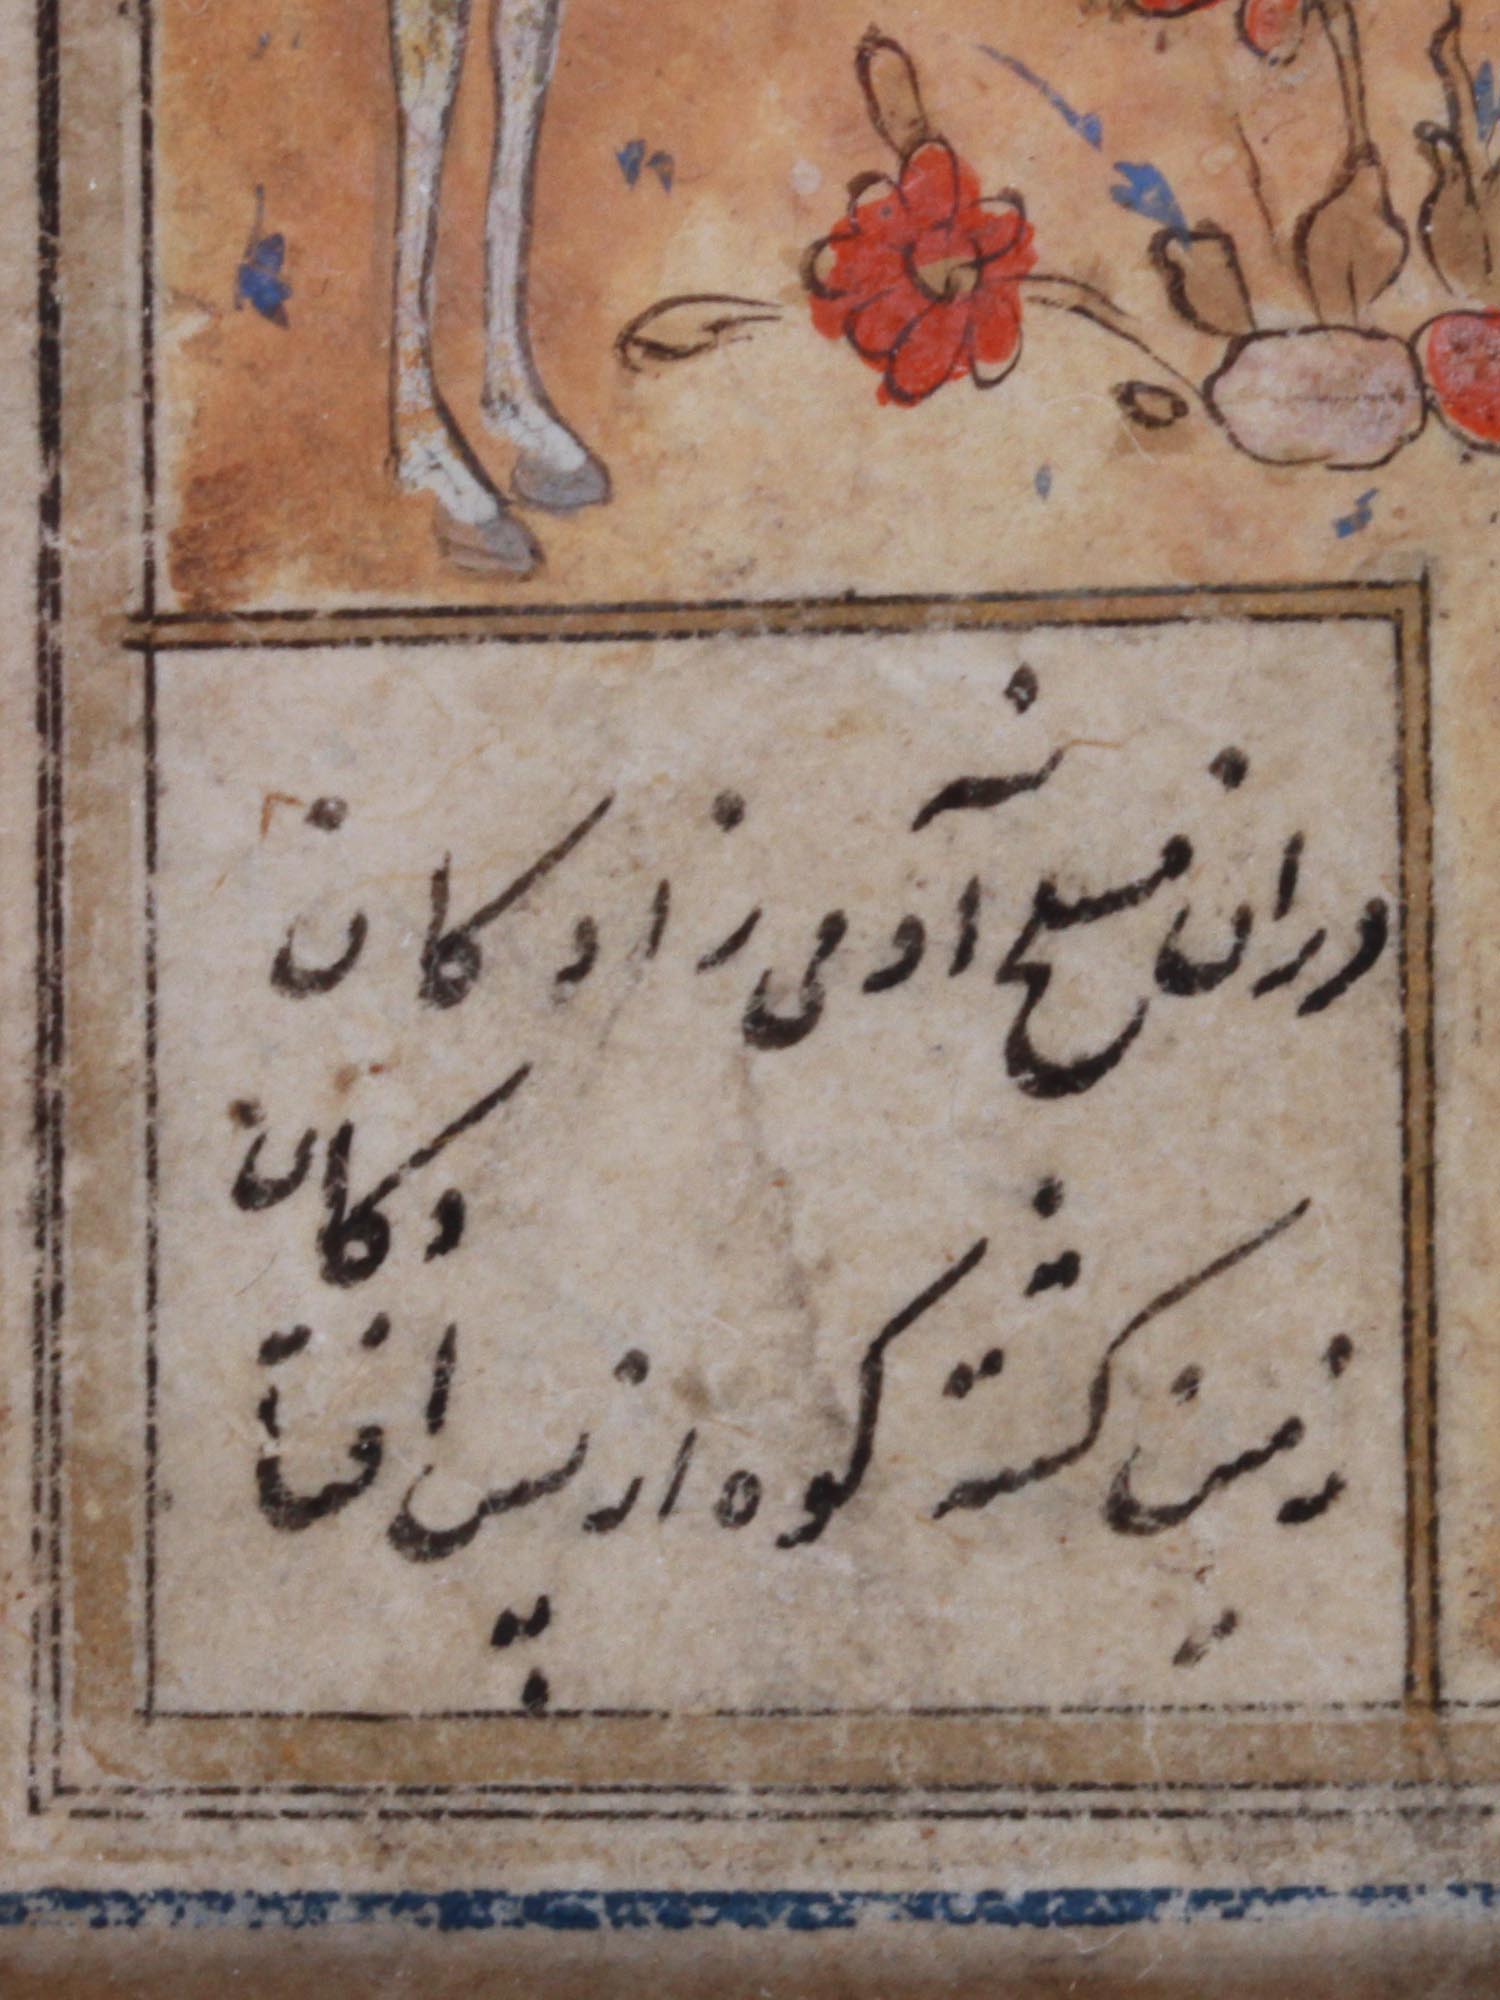 دران مسلخ آدمی زادکان
زمین کشته کوه از پس افتادکان